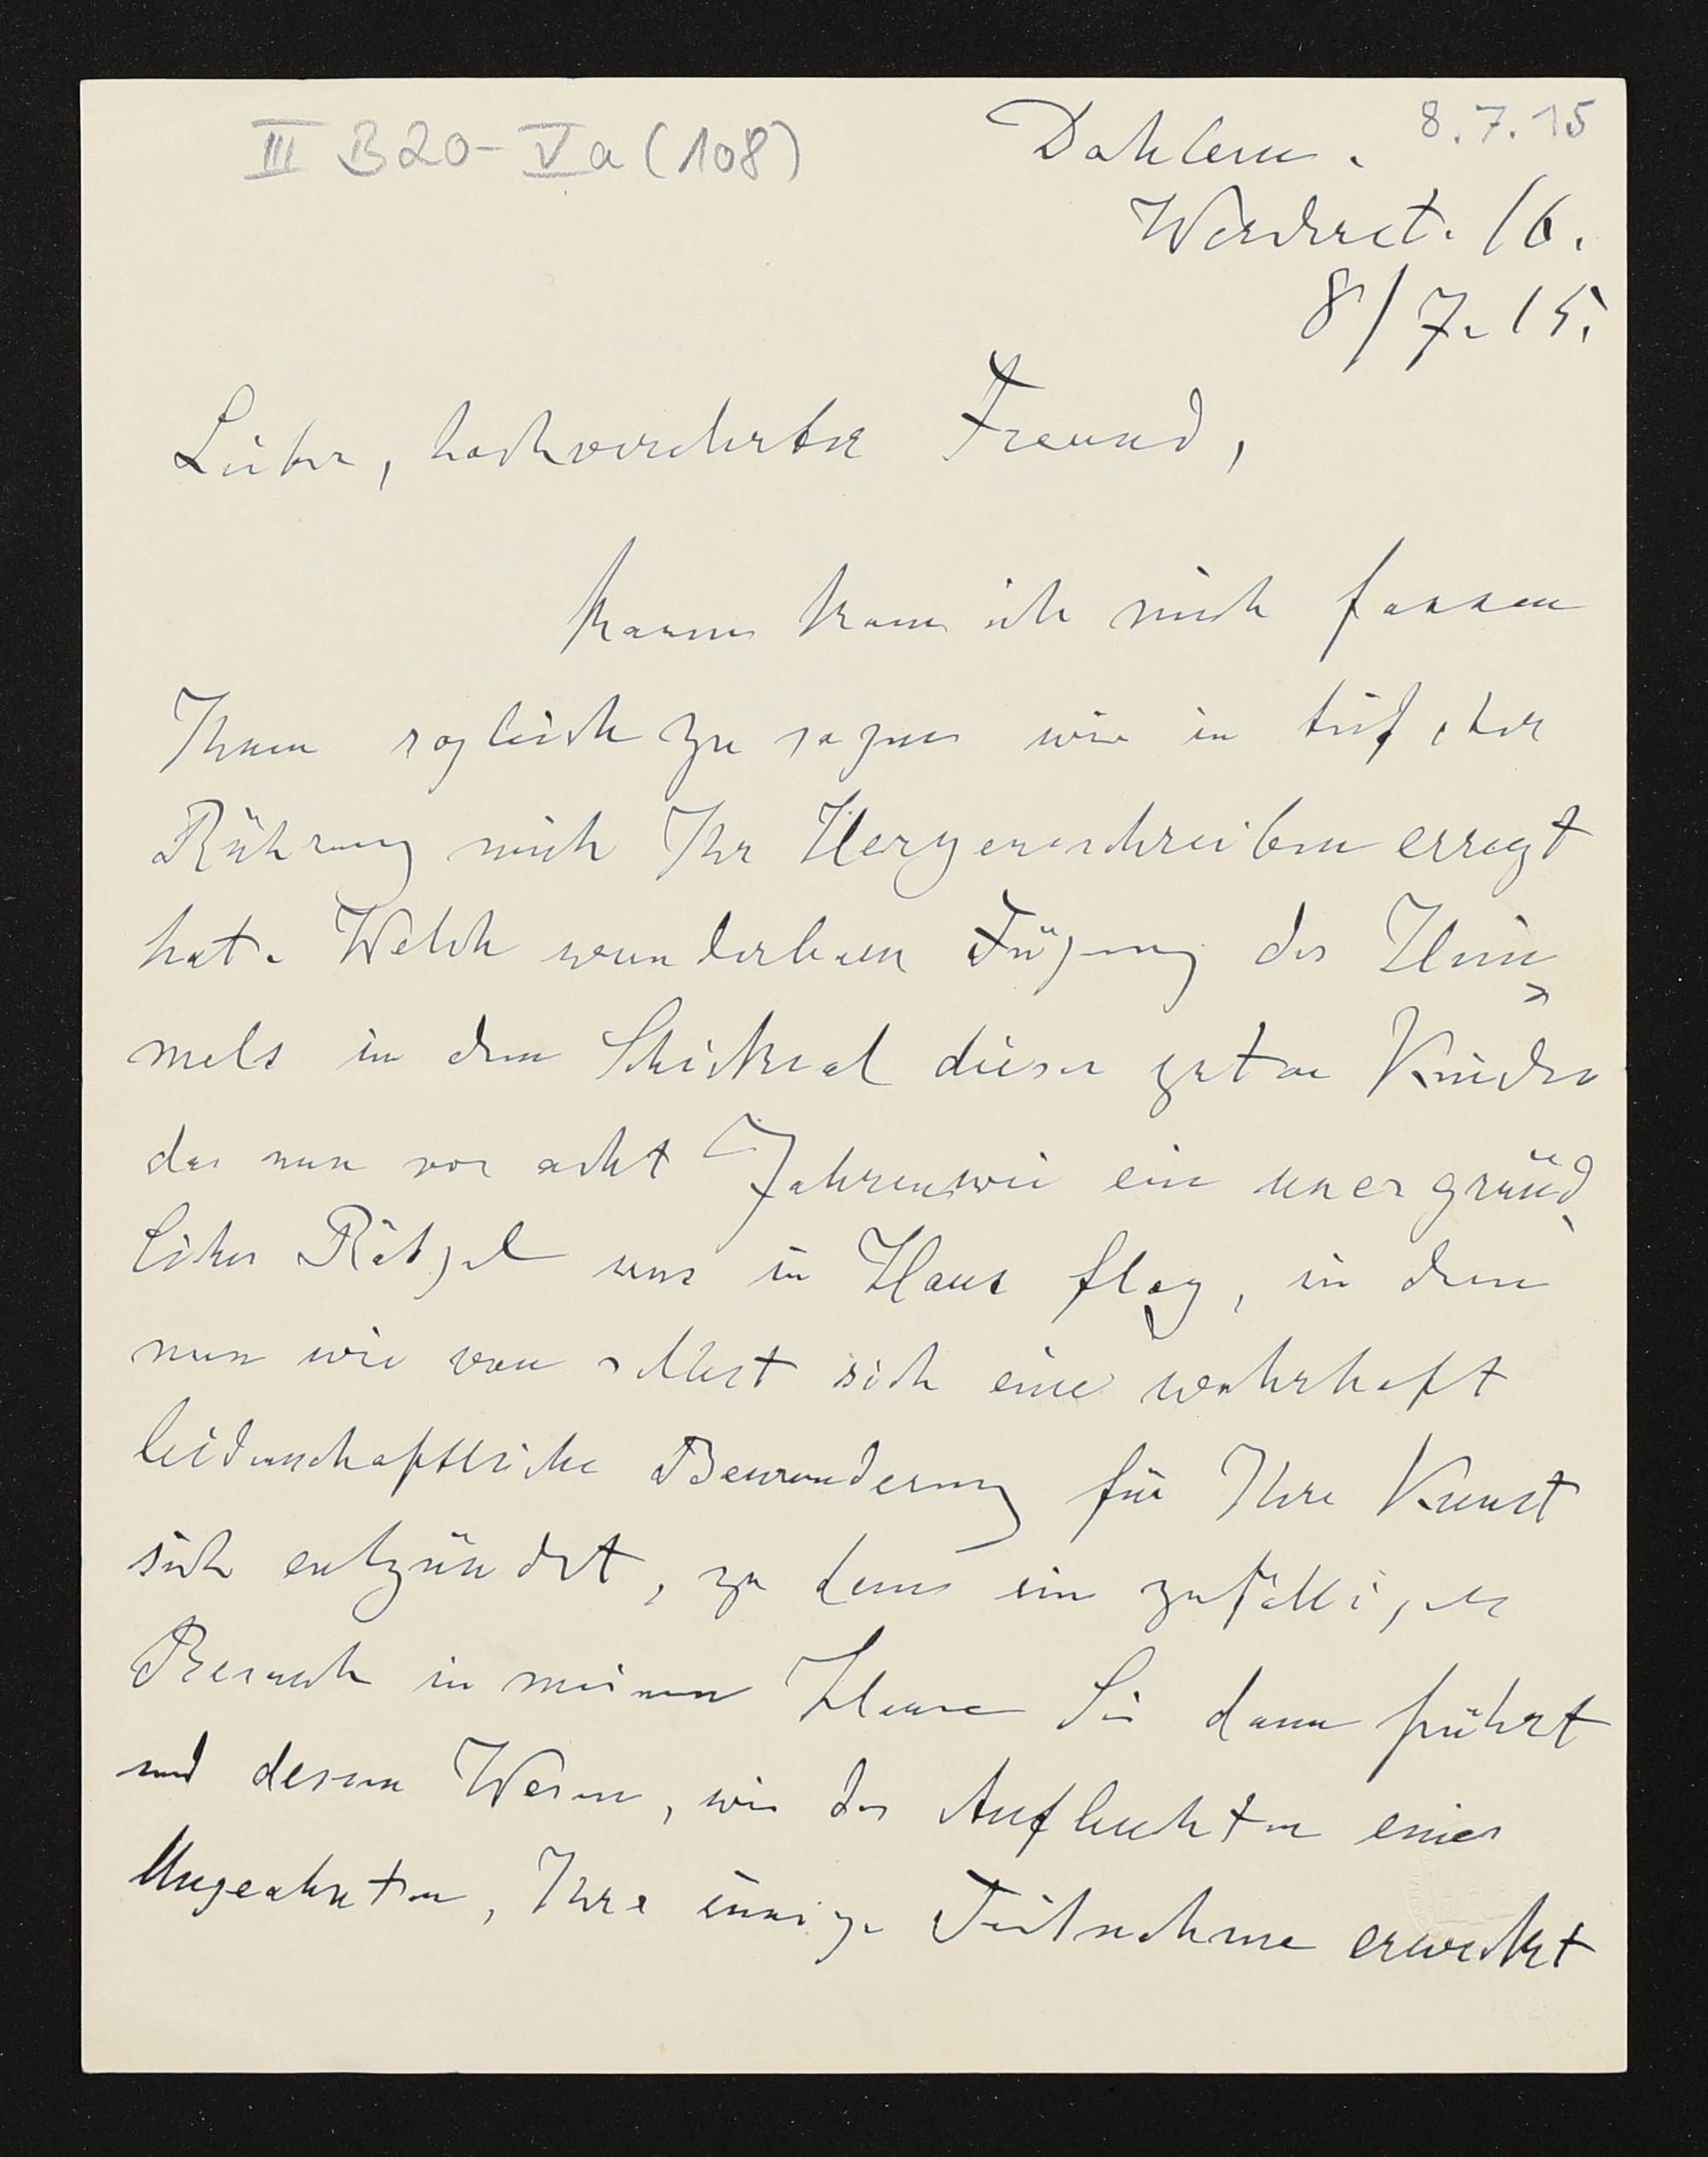 III B20-Va (108)
8.7.15
Dahlem.
Werderst. 16.
8/7.15.
Lieber, hochverehrter Freund,
kaum kann ich mich fassen
Ihnen sogleich zu sagen wie in tiefster
Rührung mich Ihr Herzensschreiben erregt
hat. Welch wunderbare Fügung des Him
mels in dem Schicksal dieses guten Kindes
das nun vor acht Jahren wie ein unergründ
liches Rätzel uns in Haus flog, in dem
nun wie von selbst sich eine wahrhaft
leidenschaftliche Bewunderung für Ihre Kunst
sich entzündet, zu dem ein zufälliger
Besuch in meinem Hause Sie dann führt
und dessen Wesen, wie das Aufleuchten eines
Ungeahnten, Ihre innige Teilnahme erweckt